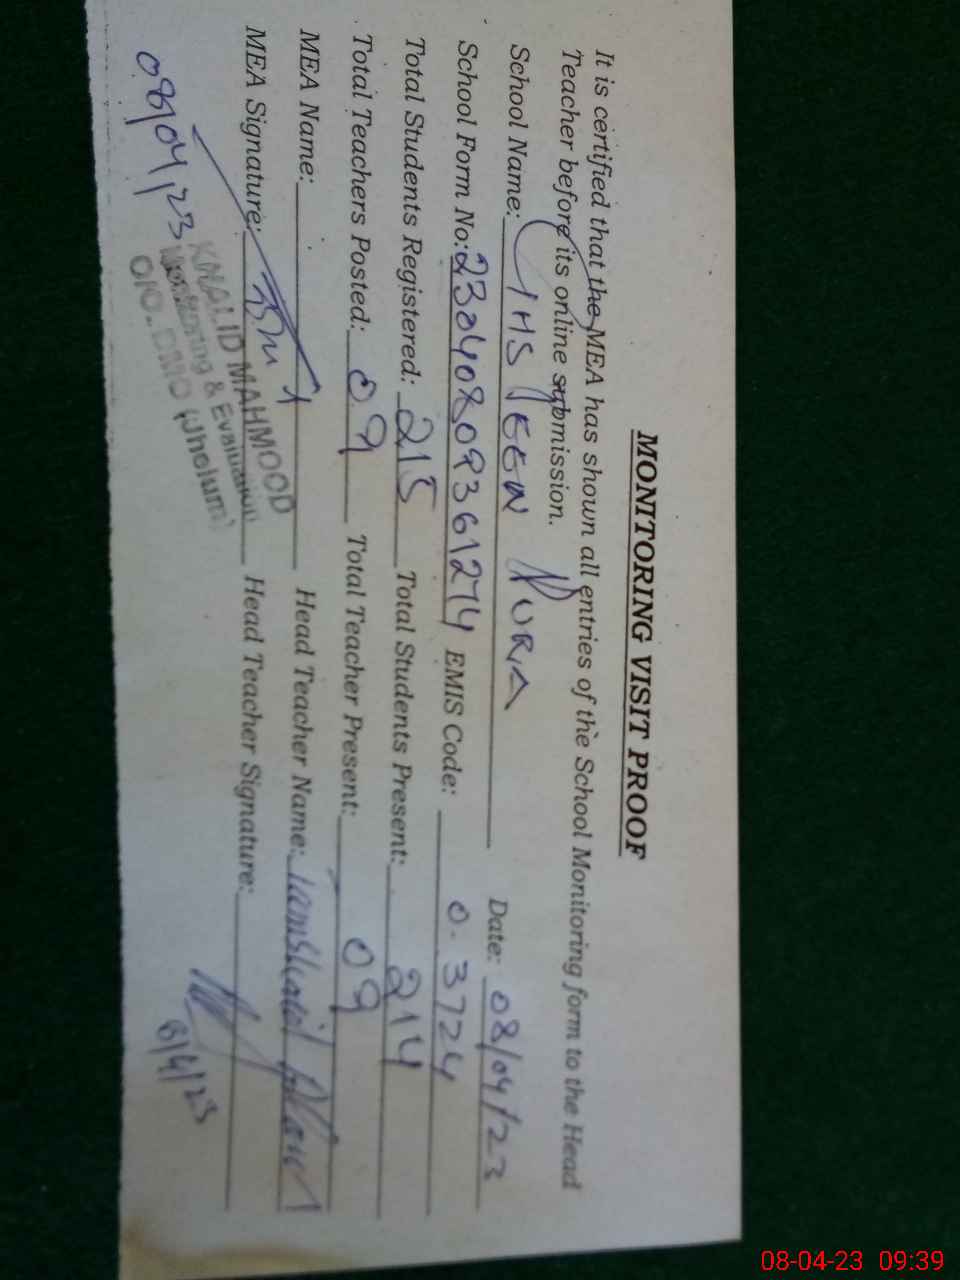 MONITORING VISIT PROOF
It is certified that the MEA has shown all entries of the School Monitoring form to the Head
Teacher before its online submission.
School Name: Date: 08/04/23
School Form No: 23040809361274 EMIS Code: 0.3724
Total Students Registered: 215 Total Students Present: 214
Total Teachers Posted: 09 Total Teacher Present: 09
MEA Name: Head Teacher Name:
MEA Signature: Head Teacher Signature:
08/04/23 8/4/23
KHALID MAHMOOD
Monitoring & Evaluation
O/O. DMO (Jhelum)
08-04-23 09:39